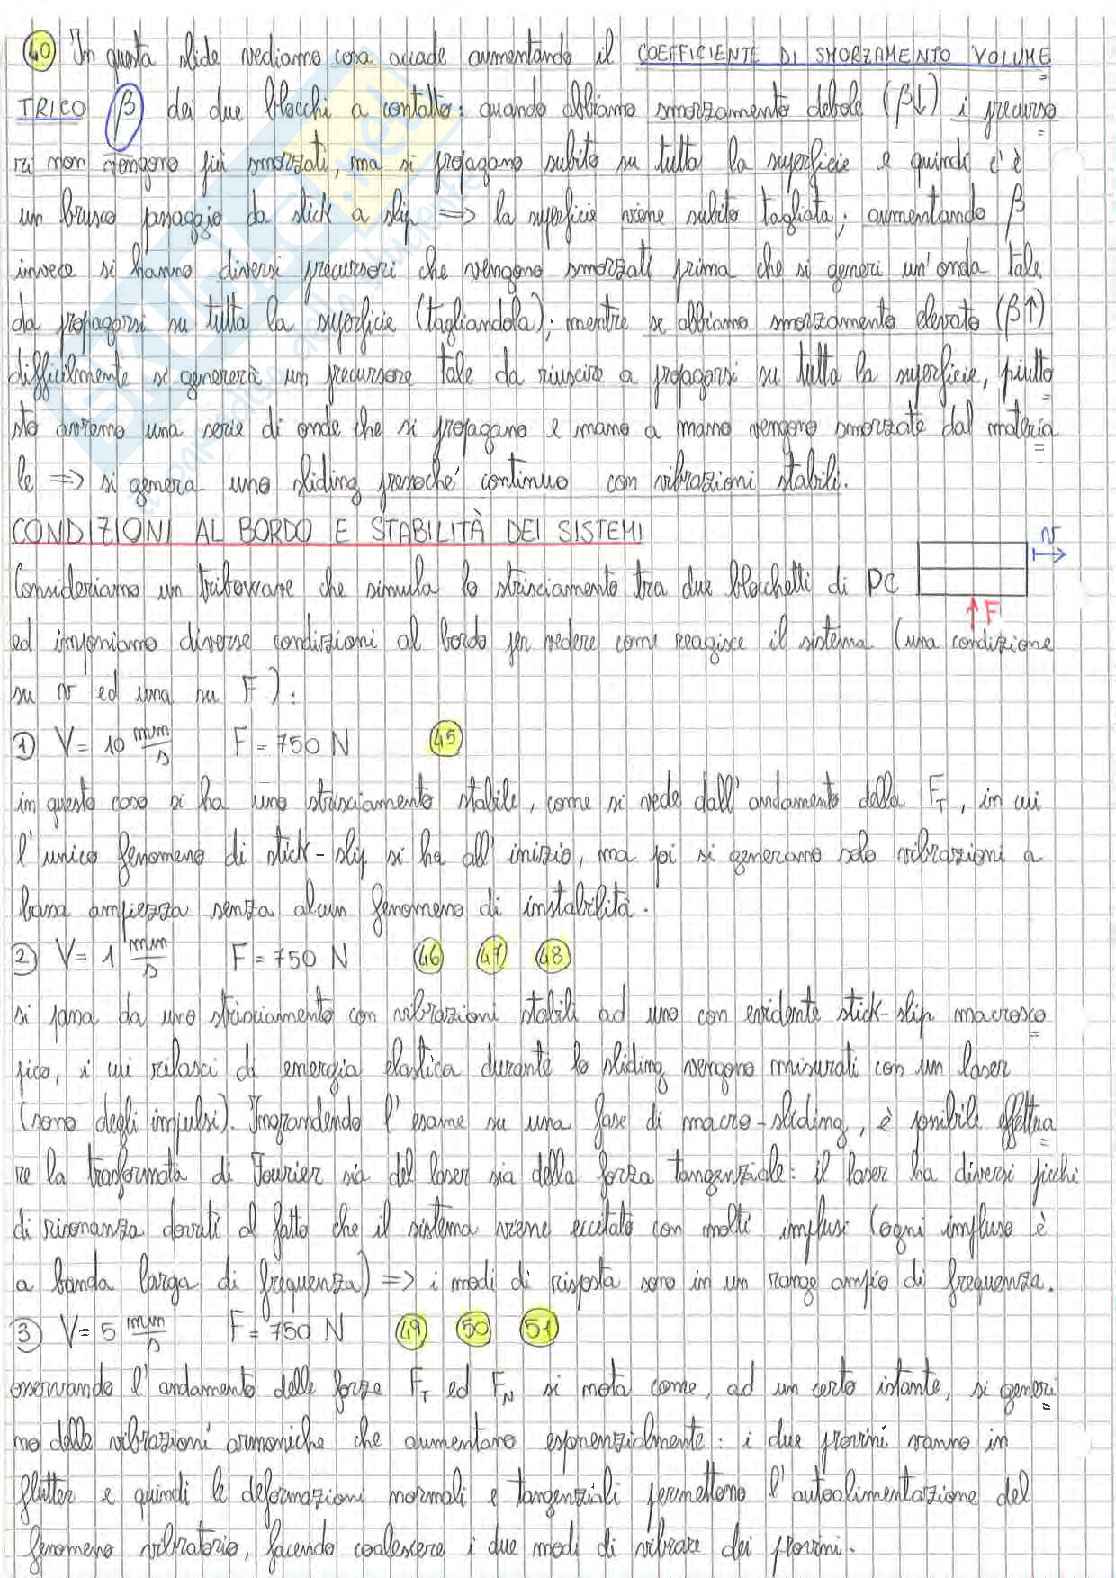 40 In questa slide vediamo cosa accade aumentando il COEFFICIENTE DI SMORZAMENTO VOLUME
TRICO β dei due blocchi a contatto: quando abbiamo smorzamento debole (β↓) i precurso
ri non vengono più smorzati, ma si propagano subito su tutta la superficie e quindi c'è
un brusco passaggio da stick a slip => la superficie viene subito tagliata; aumentando β
invece si hanno diversi precursori che vengono smorzati prima che si generi un'onda tale
da propagarsi su tutta la superficie (tagliandola); mentre se abbiamo smorzamento elevato (β↑)
difficilmente si genererà un precursore tale da riuscire a propagarsi su tutta la superficie, piutto
sto avremo una serie di onde che si propagano e mano a mano vengono smorzate dal materia
le => si genera uno sliding pressoché continuo con vibrazioni stabili.
CONDIZIONI AL BORDO E STABILITÀ DEI SISTEMI
v
Consideriamo un tribowave che simula lo strisciamento tra due blocchetti di PC
F
ed imponiamo diverse condizioni al bordo per vedere come reagisce il sistema (una condizione
su v ed una su F):
1 V = 10 mm/s F = 750 N 45
in questo caso si ha uno strisciamento stabile, come si vede dall'andamento della F_T, in cui
l'unico fenomeno di stick-slip si ha all'inizio, ma poi si generano solo vibrazioni a
bassa ampiezza senza alcun fenomeno di instabilità.
2 V = 1 mm/s F = 750 N 46 47 48
si passa da uno strisciamento con vibrazioni stabili ad uno con evidente stick-slip macrosco
pico, i cui rilasci di energia elastica durante lo sliding vengono misurati con un laser
(sono degli impulsi). Ingrandendo l'esame su una fase di macro-sliding, è possibile effettua
re la trasformata di Fourier sia del laser sia della forza tangenziale: il laser ha diversi picchi
di risonanza dovuti al fatto che il sistema viene eccitato con molti impulsi (ogni impulso è
a banda larga di frequenza) => i modi di risposta sono in un range ampio di frequenza.
3 V = 5 mm/s F = 750 N 49 50 51
osservando l'andamento delle forze F_T ed F_N si nota come, ad un certo istante, si generi
no delle vibrazioni armoniche che aumentano esponenzialmente: i due provini vanno in
flutter e quindi le deformazioni normali e tangenziali permettono l'autoalimentazione del
fenomeno vibratorio, facendo coalescere i due modi di vibrare dei provini.